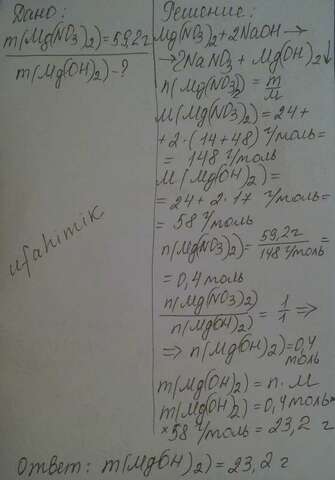 Дано:
m(Mg(NO3)2)=59,2г
m(Mg(OH)2)-?
ufahimik
Решение:
Mg(NO3)2+2NaOH→
→2NaNO3+Mg(OH)2↓
n(Mg(NO3)2)=m/M
M(Mg(NO3)2)=24+
+2·(14+48) г/моль=
=148 г/моль
M(Mg(OH)2)=
=24+2·17 г/моль=
=58 г/моль
n(Mg(NO3)2)=59,2г/148 г/моль=
=0,4 моль
n(Mg(NO3)2)/n(Mg(OH)2)=1/1 =>
=> n(Mg(OH)2)=0,4
моль
m(Mg(OH)2)=n·M
m(Mg(OH)2)=0,4 моль×
×58 г/моль=23,2 г
Ответ: m(Mg(OH)2)=23,2 г